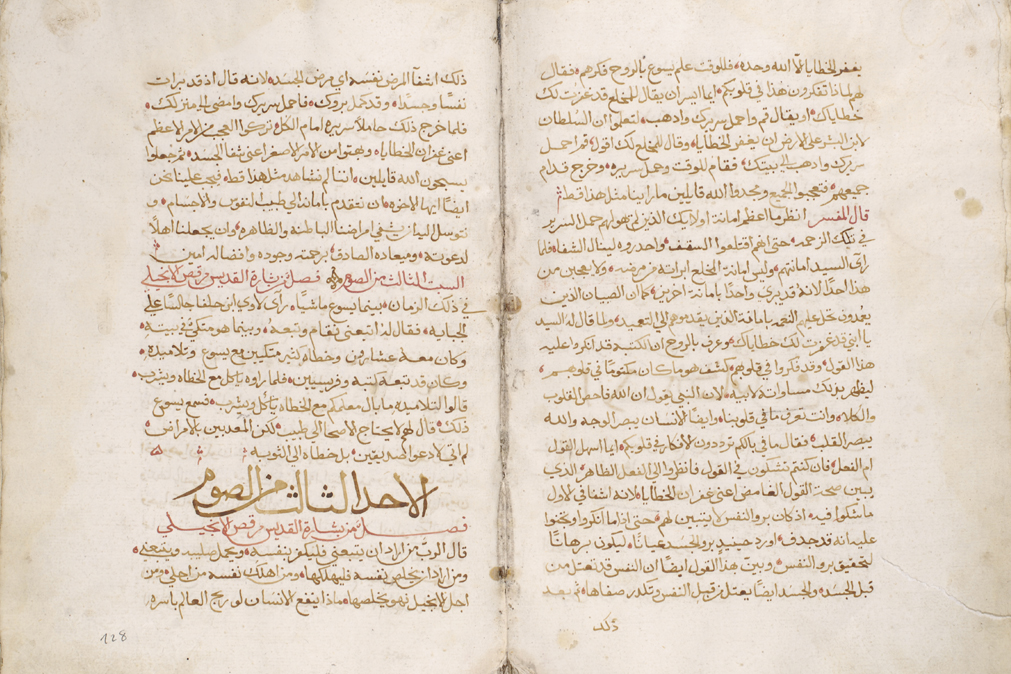 يغفر الخطايا الا الله وحده فللوقت علم يسوع بالروح فكرهم فقال
لهم لماذا تفكرون هذا في قلوبكم ايما ايسر ان يقال للمخلع قد غفرت لك
خطاياك او يقال قم واحمل سريرك واذهب لتعلموا ان السلطان
لابن البشر على الارض ان يغفر الخطايا وقال للمخلع لك اقول قم احمل
سريرك واذهب الى بيتك فقام للوقت وحمل سريره وخرج قدام
جميعهم فتعجبوا الجميع ومجدوا الله قايلين ما راينا مثل هذا قط
قال المفسر انظر ما اعظم امانة اولايك الذين لم يهولهم حمل السرير
في تلك الزحمه حتى انهم اقتلعوا السقف واحدروه لينال الشفا فلما
راى السيد امانتهم وليس امانة المخلع ابراته من مرضه ولا يعجبن من
هذا احدا لانه قد يبري واحدا بامانة اخرين كما ان الصبيان الذين
يعمدون تحل عليهم النعمه بامانة الذين يقدموهم الى التعميد ولما قال له السيد
يا ابني قد غفرت لك خطاياك وعرف بالروح ان الكتبه قد انكروا عليه
هذا القول وقد فكروا في قلوبهم كشف هو ما كان مكتوما في قلوبهم
ليظهر بذلك مساواته لابيه لان النبي يقول ان الله فاحص القلوب
والكلاء وانت تعرف ما في قلوبنا وايضا الانسان يبصر الوجه والله
يبصر القلب فقال ما بالكم ترددون الافكار في قلوبكم ايما اسهل القول
ام الفعل فان كنتم تشكون في القول فانظروا الى الفعل الظاهر الذي
يبين صحة القول الغامض اعني غفران الخطايا لانه اشفا في الاول
ما شكوا فيه اذ كان برو النفس لا يتبين لهم حتى اذا ما انكروا وتحنوا
عليه انه قد جدف اورد حينيذ برو الجسد عيانا ليكون برهانا
لتحقيق برو النفس وبين بهذا القول ايضا ان النفس قد تعتل من
قبل الجسد والجسد ايضا يعتل من قبل النفس وتكدر صفاها ثم بعد
ذلك
ذلك اشفا المرض نفسه اي مرض الجسد لانه قال اذ قد برات
نفسا وجسدا وقد كمل بروك فاحمل سريرك وامضى الى منزلك
فلما خرج ذلك حاملا سريره امام الكل تركوا العجب من الامر الاعظم
اعني غفران الخطايا وبهتوا من الامر الاصغر اعني شفا الجسد ثم جعلوا
يسبحون الله قايلين اننا لم نشاهد مثل هذا قط فيجب علينا نحن
ايضا ايها الاخوه ان نتقدم بامانه الى طبيب النفوس والاجسام و
نتوسل اليه ان يشفي امراضنا الباطنة والظاهره وان يجعلنا اهلا
لدعوته وميعاده الصادق برحمته وجوده وافضاله امين
السبت الثالث من الصوم فصل من بشارة القديس مرقص الانجيلي
في ذلك الزمان بينما يسوع ماشيا راى لاوي ابن حلفا جالسا على
الجبايه فقال له اتبعني فقام وتبعه وبينما هو متكي في بيته
وكان معه عشارون وخطاه كثير متكيين مع يسوع وتلاميذه
وكان قد تبعه كتبة وفريسيين فلما راوه ياكل مع الخطاه ويشرب
قالوا لتلاميذه ما بال معلمكم مع الخطاه ياكل ويشرب فسمع يسوع
ذلك قال لهم لا يحتاج الاصحا الى طبيب لكن المعذبين بالامراض
لم اتي لادعوا الصديقين بل الخطاه الى التوبه
الاحد الثالث من الصوم
فصل من بشارة القديس مرقص الانجيلي
قال الرب من اراد ان يتبعني فليكفر بنفسه ويحمل صليبه ويتبعني
ومن اراد ان يخلص نفسه فليهلكها ومن اهلك نفسه من اجلي ومن
اجل الانجيل فهو يخلصها ماذا ينفع الانسان لو ربح العالم باسره
128